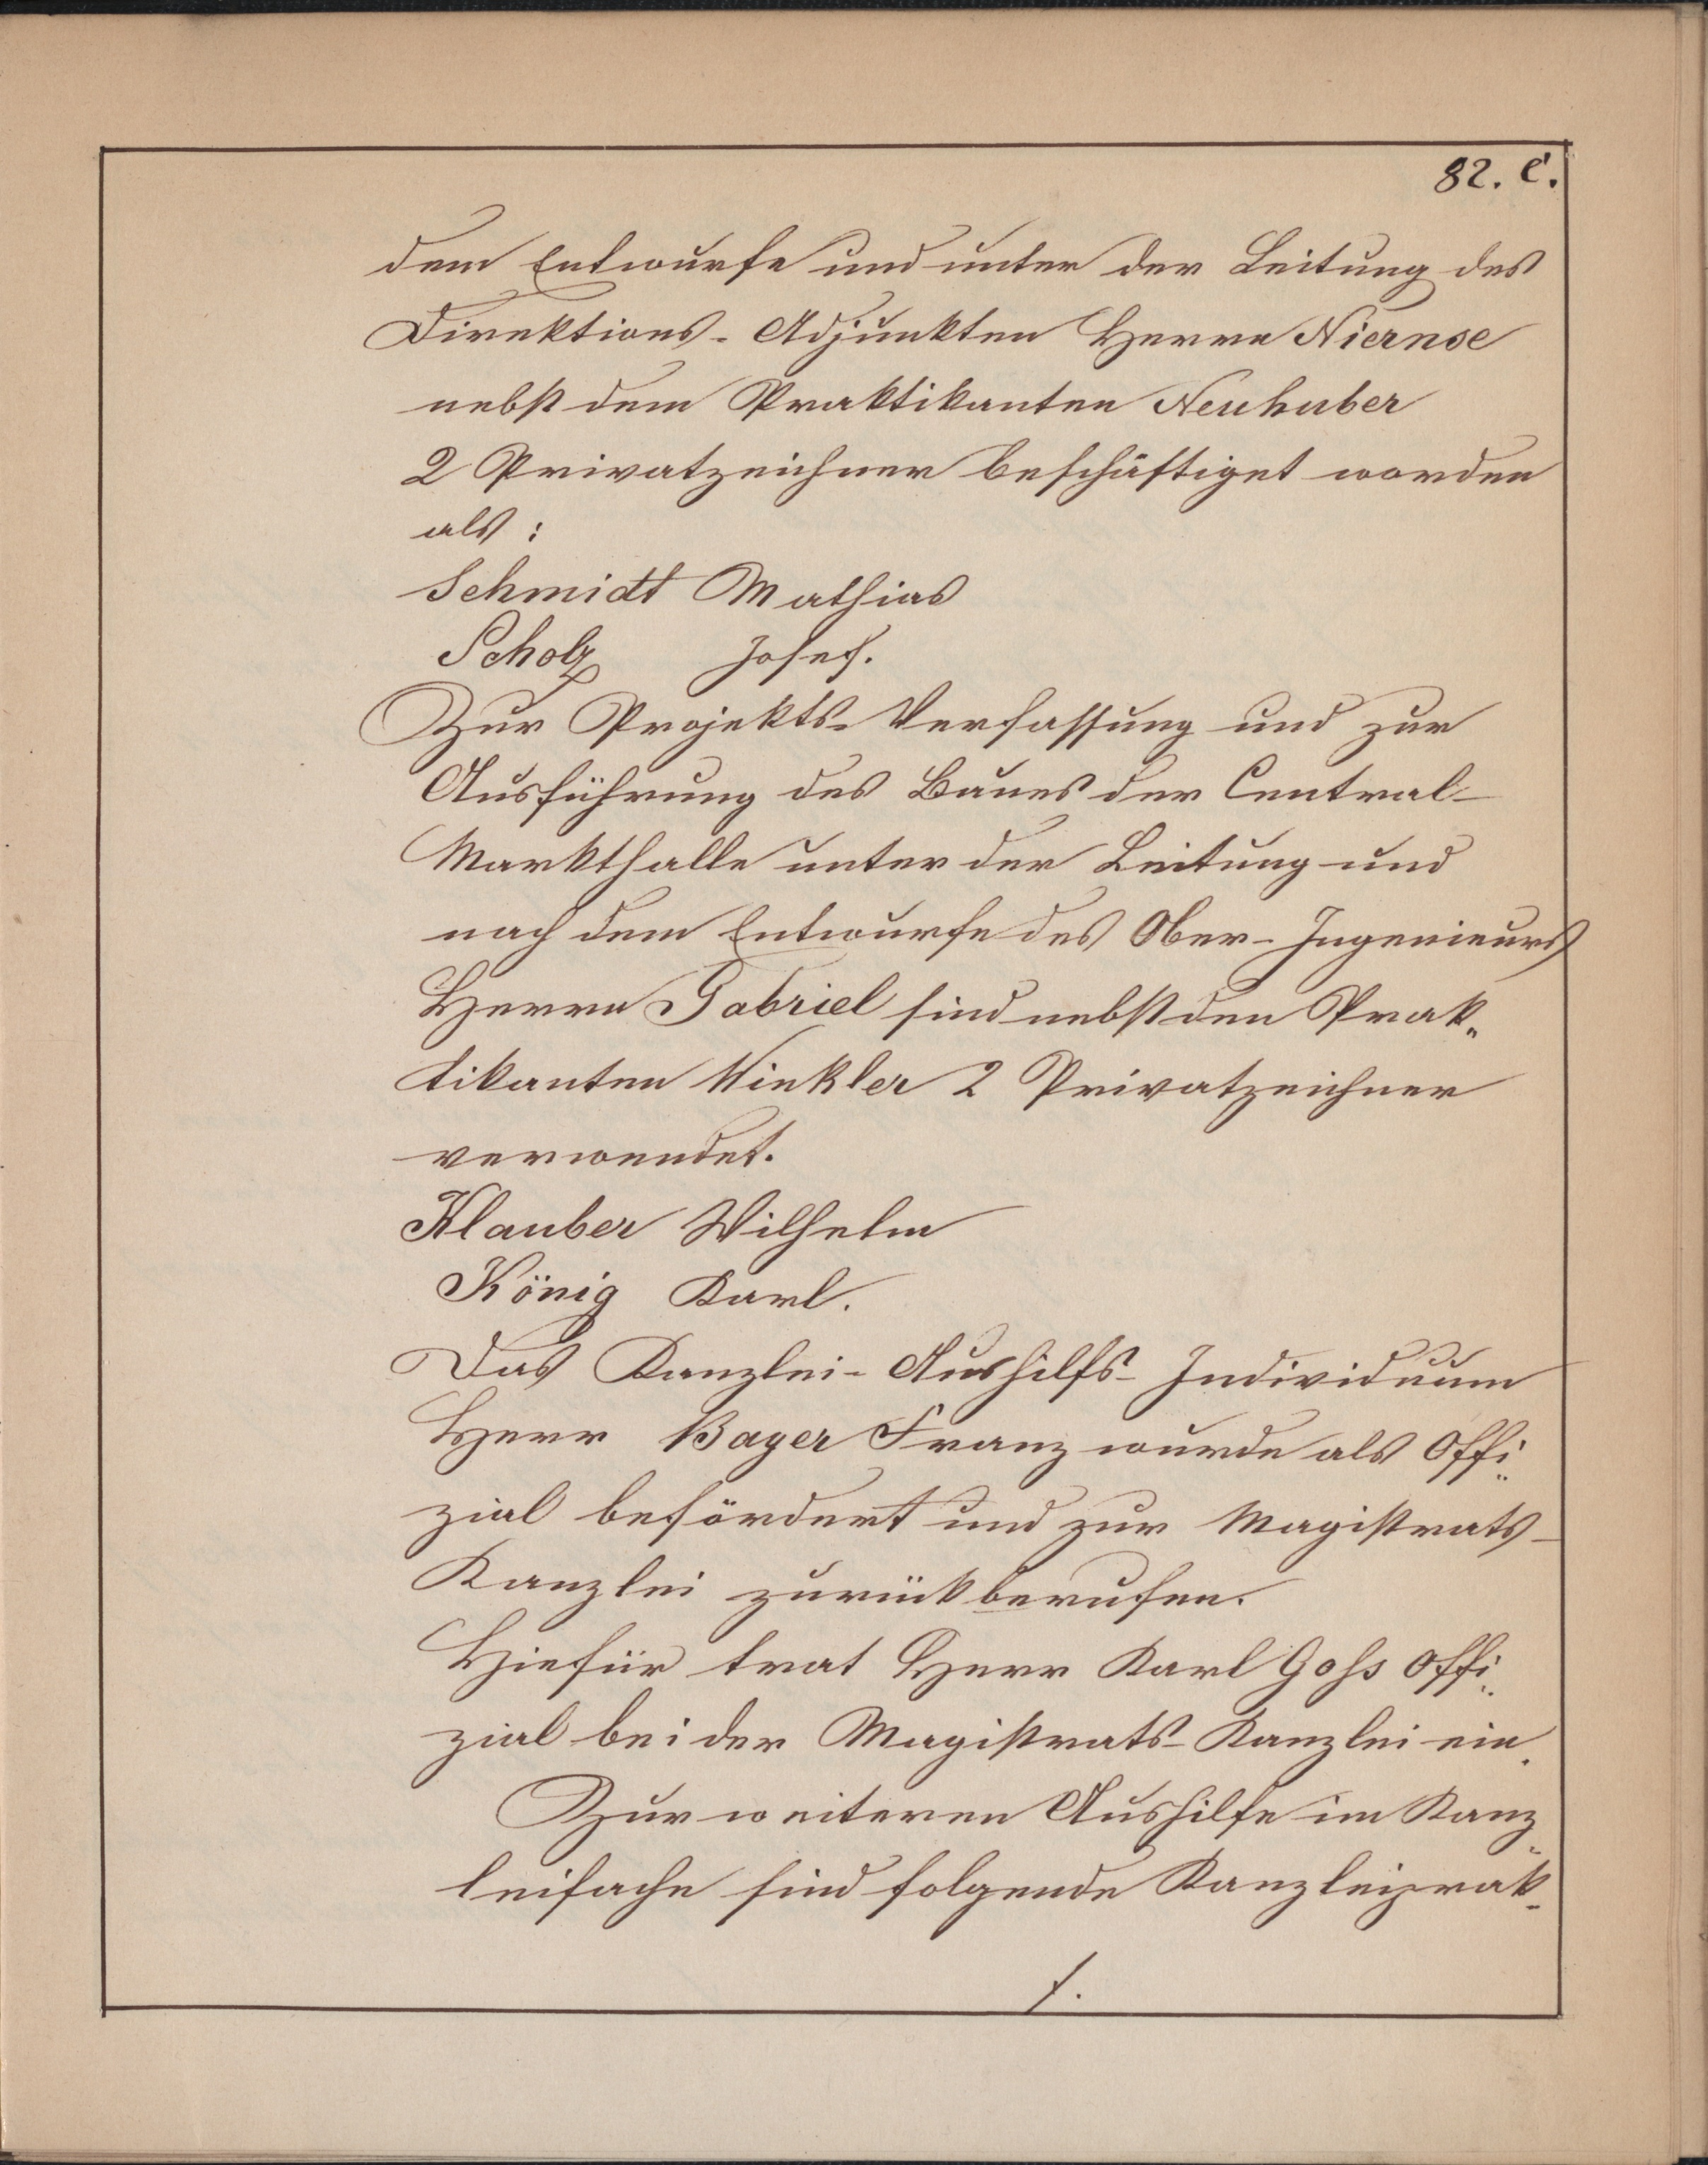 82. c.
dem Entwurfe und unter der Leitung des
Direktions-Adjunkten Herrn Niernse
nebst dem Praktikanten Neuhuber
2 Privatzeichner beschäftiget worden
als:
Schmidt Mathias
Scholz Josef.
Zur Projekts-Verfassung und zur
Ausführung des Baues der Central-
Markthalle unter der Leitung und
nach dem Entwurfe des Ober-Ingenieurs
Herrn Gabriel sind nebst den Prak-
tikanten Winkler 2 Privatzeichner
verwendet.
Klauber Wilhelm
König Karl.
Das Kanzlei-Aushilfs-Individuum
Herr Bayer Franz wurde als Offi-
zial befördert und zur Magistrats-
Kanzlei zurückberufen.
Hiefür trat Herr Karl Gohs Offi-
zial bei der Magistrats-Kanzlei ein.
Zur weiteren Aushilfe im Kanz-
leifache sind folgende Kanzleiprak-
/.